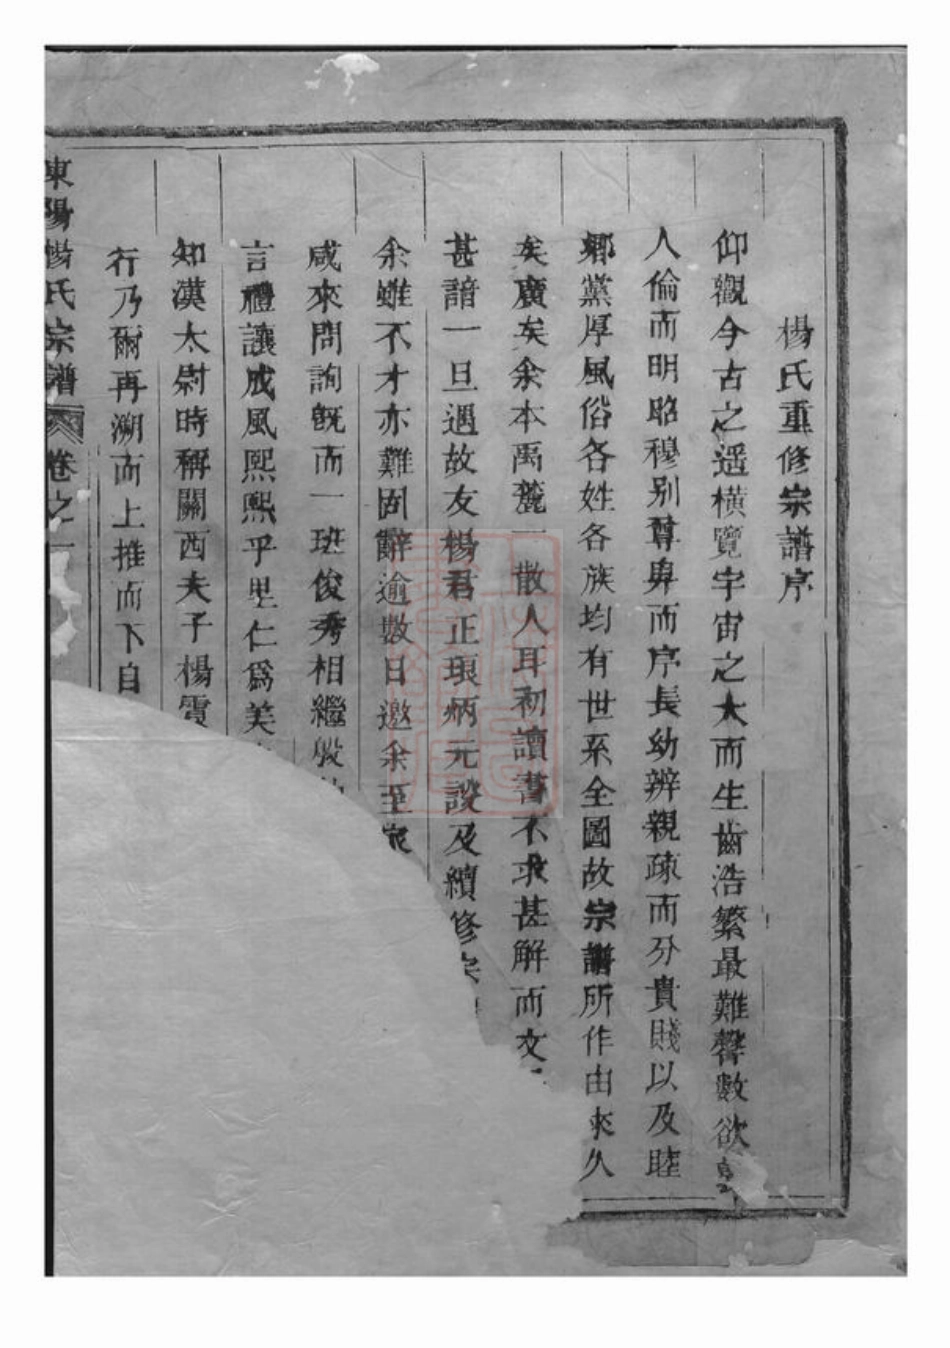 楊氏重修宗譜序
仰觀今古之遥橫覽宇宙之大而生齒浩繁最難罄數欲
人倫而明昭穆别尊卑而序長幼辨親疎而分貴賤以及睦
鄉黨厚風俗各姓各族均有世系全圖故宗譜所作由來久
矣廣矣余本禹麓一散人耳初讀書不求甚解而文
甚諳一旦遇故友楊君正琅炳元談及續修宗
余雖不才亦難固辭逾數日邀余至家
咸來問詢旣而一班俊秀相繼
言禮讓成風熙熙乎里仁爲美
知漢太尉時稱關西夫子楊震
行乃爾再溯而上推而下自
東陽楊氏宗譜 卷之一